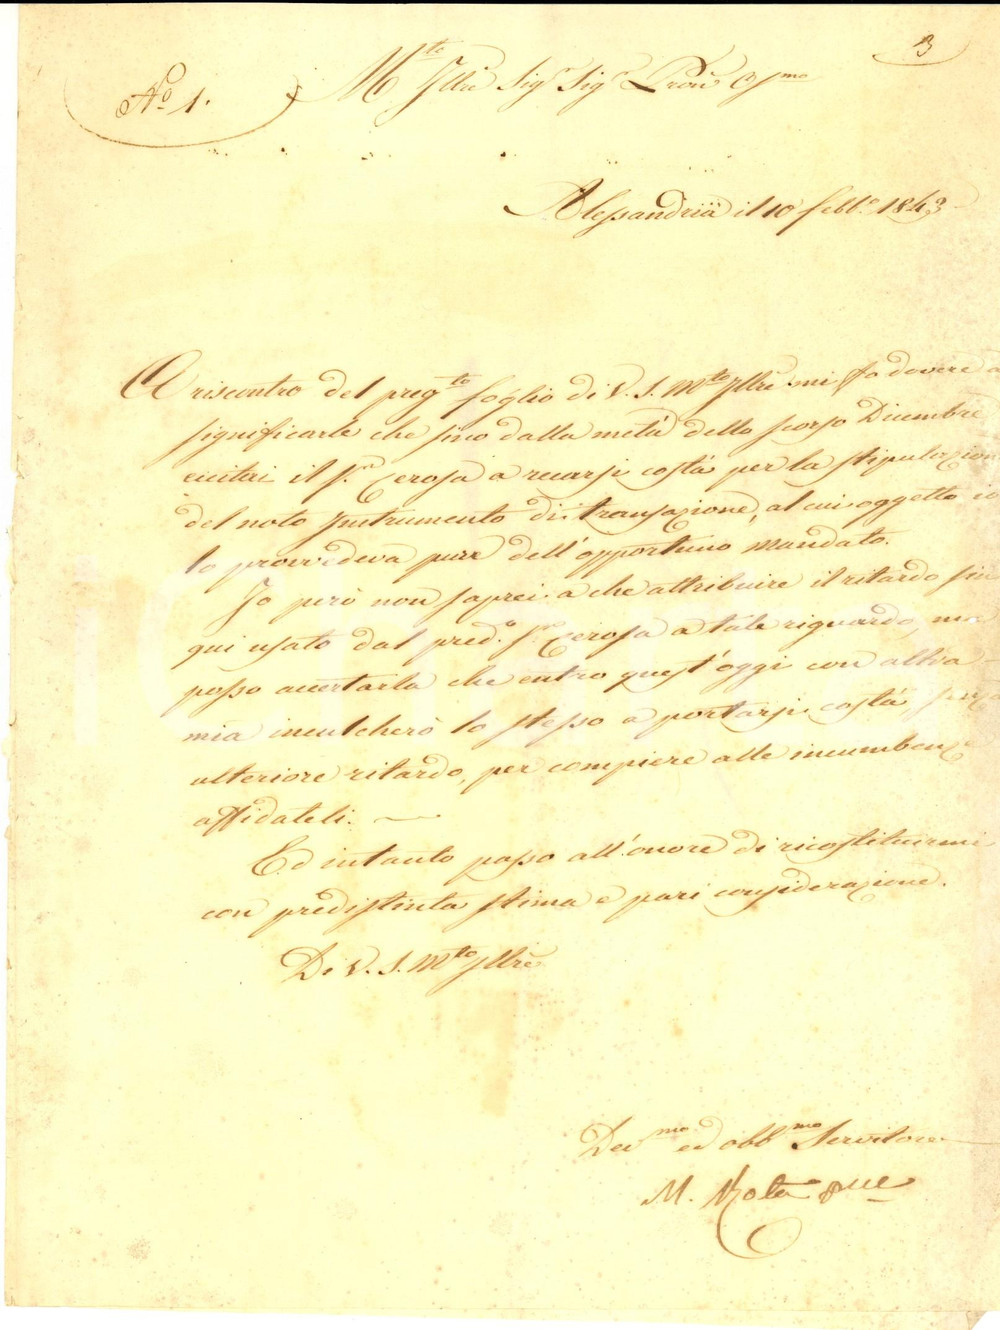 3
N.o 1.
M.to Ill.re Sig.r Sig.r Pron O.mo
Alessandria il 10 febb.o 1843
A riscontro del preg.to foglio di V. S. M.to Ill.re mi fo dovere a
significarle che sino dalla metà dello scorso Dicembre
eccitai il S.r Cerosa a recarsi costà per la stipulazion
del noto Instrumento di transazione, al cui oggetto io
lo provvedeva pure dell'opportuno mandato.
Io però non saprei a che attribuire il ritardo sin
qui usato dal pred.o S.r Cerosa a tale riguardo, ma
posso accertarla che entro quest'oggi con altra
mia inculcherò lo stesso a portarsi costà, senza
ulteriore ritardo, per compiere alle incumbenze
affidateli.
Ed intanto passo all'onore di ricostituirmi
con predistinta stima e pari considerazione.
Di V. S. M.to Ill.re
Dev.mo ed obb.mo Servitore
M. Rota